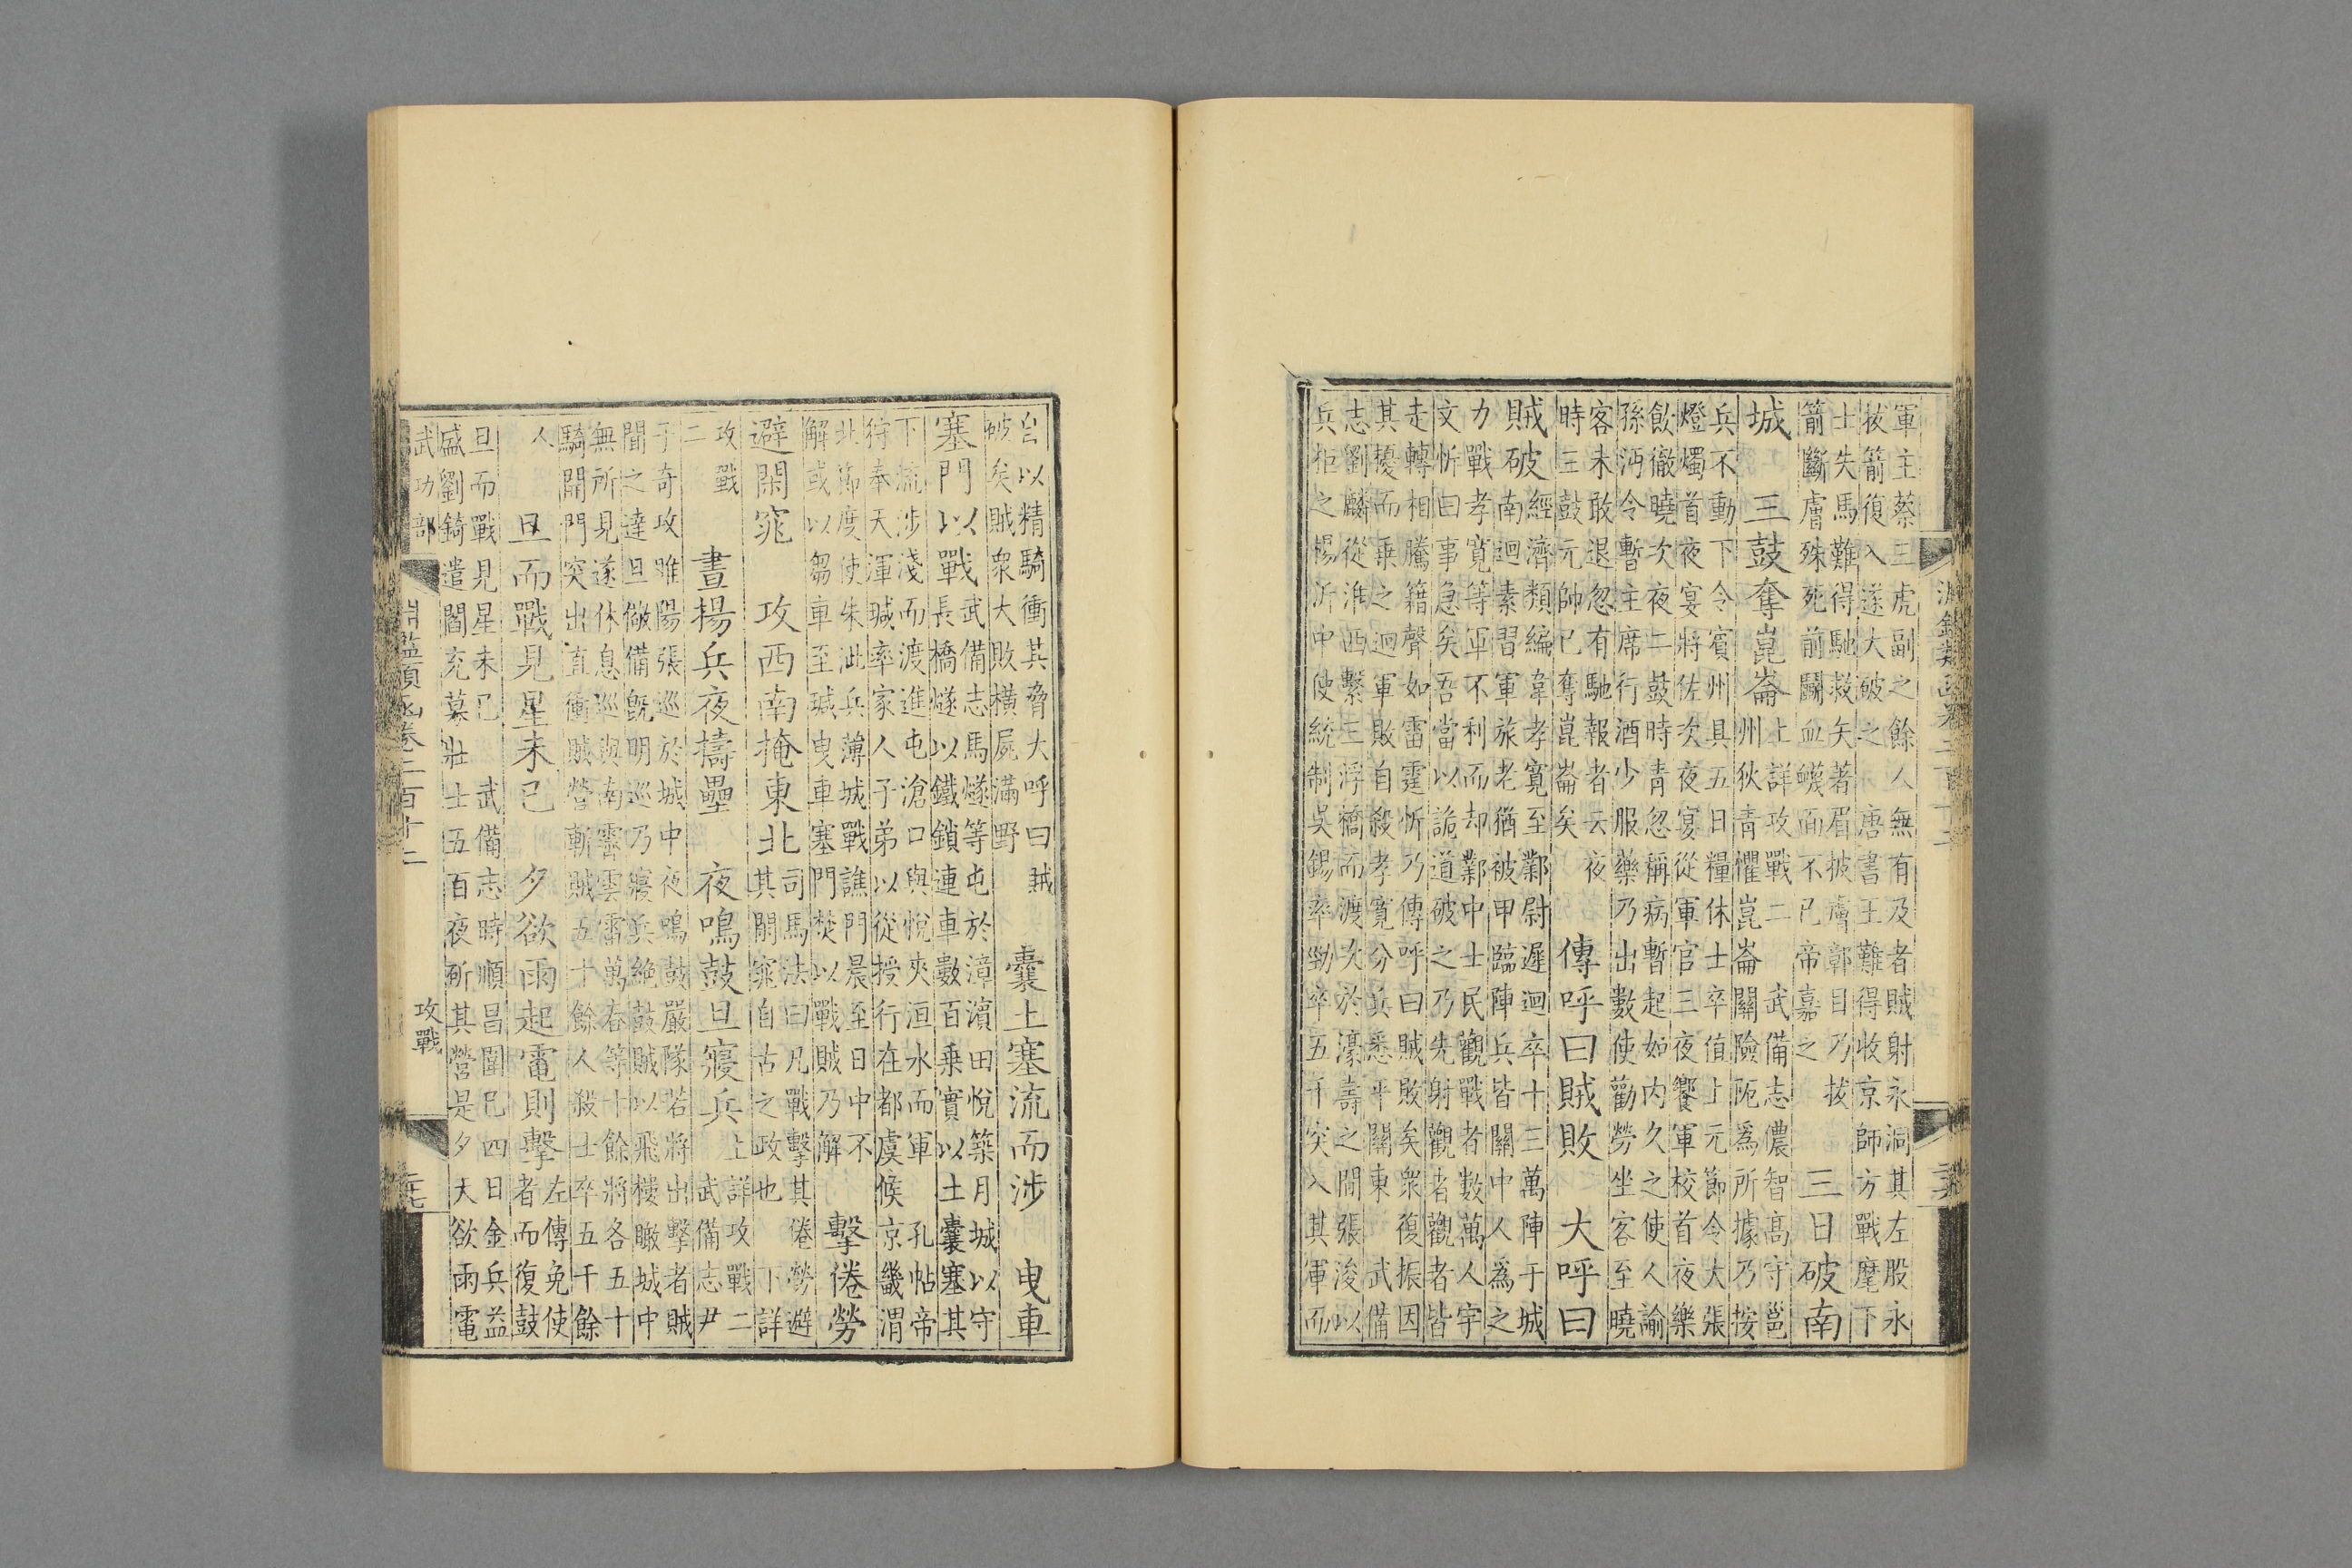 淵鑑類函卷二百十二
軍主蔡三虎副之餘人無有及者賊射永洞其左股永
拔箭復入遂大破之 唐書王難得收京師方戰麾下
士失馬難得馳救矢著眉披膚鄣目乃拔
箭斷膚殊死前鬭血衊面不已帝嘉之
三日破南
城 三鼓奪崑崙
上詳攻戰二 武備志儂智高守邕
州狄青懼崑崙關險阨為所據乃按
兵不動下令賓州具五日糧休士卒值上元節令大張
燈燭首夜宴將佐次夜宴從軍官三夜饗軍校首夜樂
飲徹曉次夜二鼓時青忽稱病暫起如內久之使人諭
孫沔令暫主席行酒少服藥乃出數使勸勞坐客至曉
客未敢退忽有馳報者云夜
時三鼓元帥已奪崑崙矣
傳呼曰賊敗 大呼曰
賊破
經濟類編韋孝寬至鄴尉遲迴卒十三萬陣于城
南迴素習軍旅老猶被甲臨陣兵皆關中人為之
力戰孝寬等軍不利而却鄴中士民觀戰者數萬人宇
文忻曰事急矣吾當以詭道破之乃先射觀者觀者皆
走轉相騰籍聲如雷霆忻乃傳呼曰賊敗矣衆復振因
其擾而乘之迴軍敗自殺孝寬分兵悉平關東 武備
志劉麟從淮西繫三浮橋而渡次於濠壽之間張浚以
兵拒之楊沂中使統制吳錫率勁卒五千突入其軍而
自以精騎衝其脅大呼曰賊
破矣賊衆大敗橫屍滿野
囊土塞流而涉 曳車
塞門以戰
武備志馬燧等屯於漳濱田悅築月城以守
長橋燧以鐵鎖連車數百乘實以土囊塞其
下流涉淺而渡進屯滄口與悅夾洹水而軍 孔帖帝
狩奉天渾瑊率家人子弟以從授行在都虞候京畿渭
北節度使朱泚兵薄城戰譙門晨至日中不
解或以芻車至瑊曳車塞門焚以戰賊乃解
擊倦勞
避閑窕 攻西南掩東北
司馬法曰凡戰擊其倦勞避
其閑窕自古之政也 下詳
攻戰
二
晝揚兵夜擣壘 夜鳴鼓旦寢兵
上詳攻戰二
武備志尹
子奇攻睢陽張巡於城中夜鳴鼓嚴隊若將出擊者賊
聞之達旦儆備旣明巡乃寢兵絕鼓賊以飛樓瞰城中
無所見遂休息巡與南霽雲雷萬春等十餘將各五十
騎開門突出直衝賊營斬賊五十餘人殺士卒五千餘
人
旦而戰見星未已 夕欲雨起電則擊
左傳免使
者而復鼓
旦而戰見星未已 武備志時順昌圍已四日金兵益
盛劉錡遣閻充募壯士五百夜斫其營是夕天欲雨電
武功部 淵鑑類函卷二百十二 攻戰 二十七